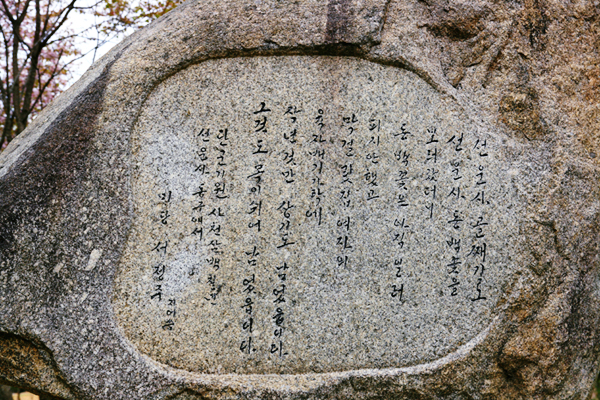 선운사 골째기로
선운사 동백꽃을
보러 갔더니
동백꽃은 아직 일러
피지 안했고
막걸릿집 여자의
육자배기 가락에
작년것만 상기도 남었읍디다.
그것도 목이쉬어 남었읍디다.
단군기원 사천삼백칠년
선운사 동구에서
미당 서정주 지어씀